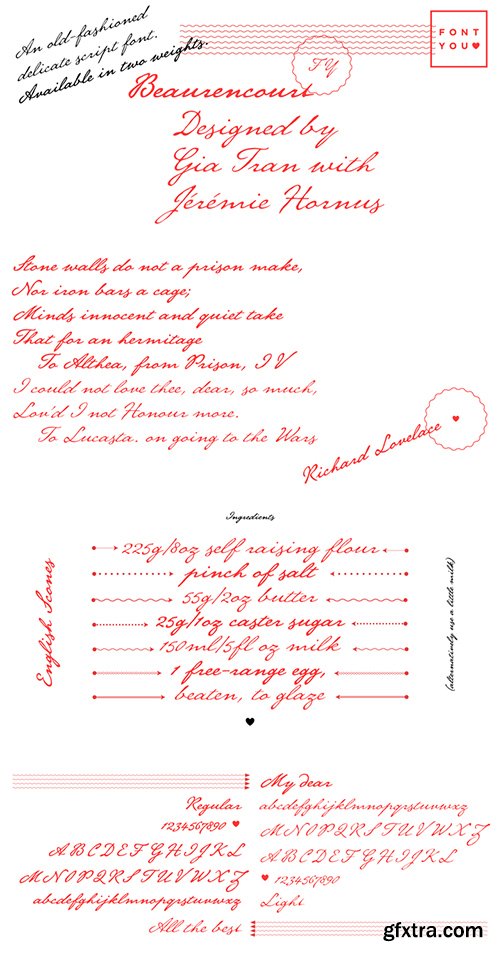 An old-fashioned
delicate script font.
Available in two weights.
FONT
YOU♥
TY
Beaurencourt
Designed by
Gia Tran with
Jérémie Hornus
Stone walls do not a prison make,
Nor iron bars a cage;
Minds innocent and quiet take
That for an hermitage
To Althea, from Prison, IV
I could not love thee, dear, so much,
Lov'd I not Honour more.
To Lucasta. on going to the Wars
Richard Lovelace
Ingredients
English Scones
225g/8oz self raising flour
pinch of salt
55g/2oz butter
25g/1oz caster sugar
150ml/5fl oz milk
1 free-range egg,
beaten, to glaze
(alternatively use a little milk)
♥
Regular
1234567890 ♥
ABCDEFGHIJKL
MNOPQRSTUVWXZ
abcdefghijklmnopqrstuvwxz
All the best
My dear
abcdefghijklmnopqrstuvwxz
MNOPQRSTUVWXZ
ABCDEFGHIJKL
♥ 1234567890
Light
gfxtra.com